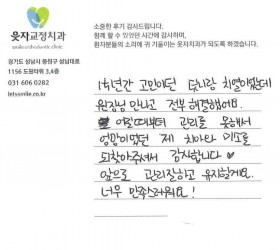 소중한 후기 감사드립니다.
함께 할 수 있었던 시간에 감사하며,
환자분들의 소리에 귀 기울이는 웃자치과가 되도록 하겠습니다.
웃자교정치과
smile orthodontic clinic
경기도 성남시 중원구 성남대로
1156 도원타워 3,4층
031 606 0282
letsmile.co.kr
15년간 고민이던 덧니랑 치열이었는데
원장님 만나고 전부 해결했어요.
어릴때부터 관리를 못해서
엉망이었던 제 치아와 미소를
되찾아주셔서 감사합니다♡
앞으로 관리잘하고 유지할게요.
너무 만족스러워요!